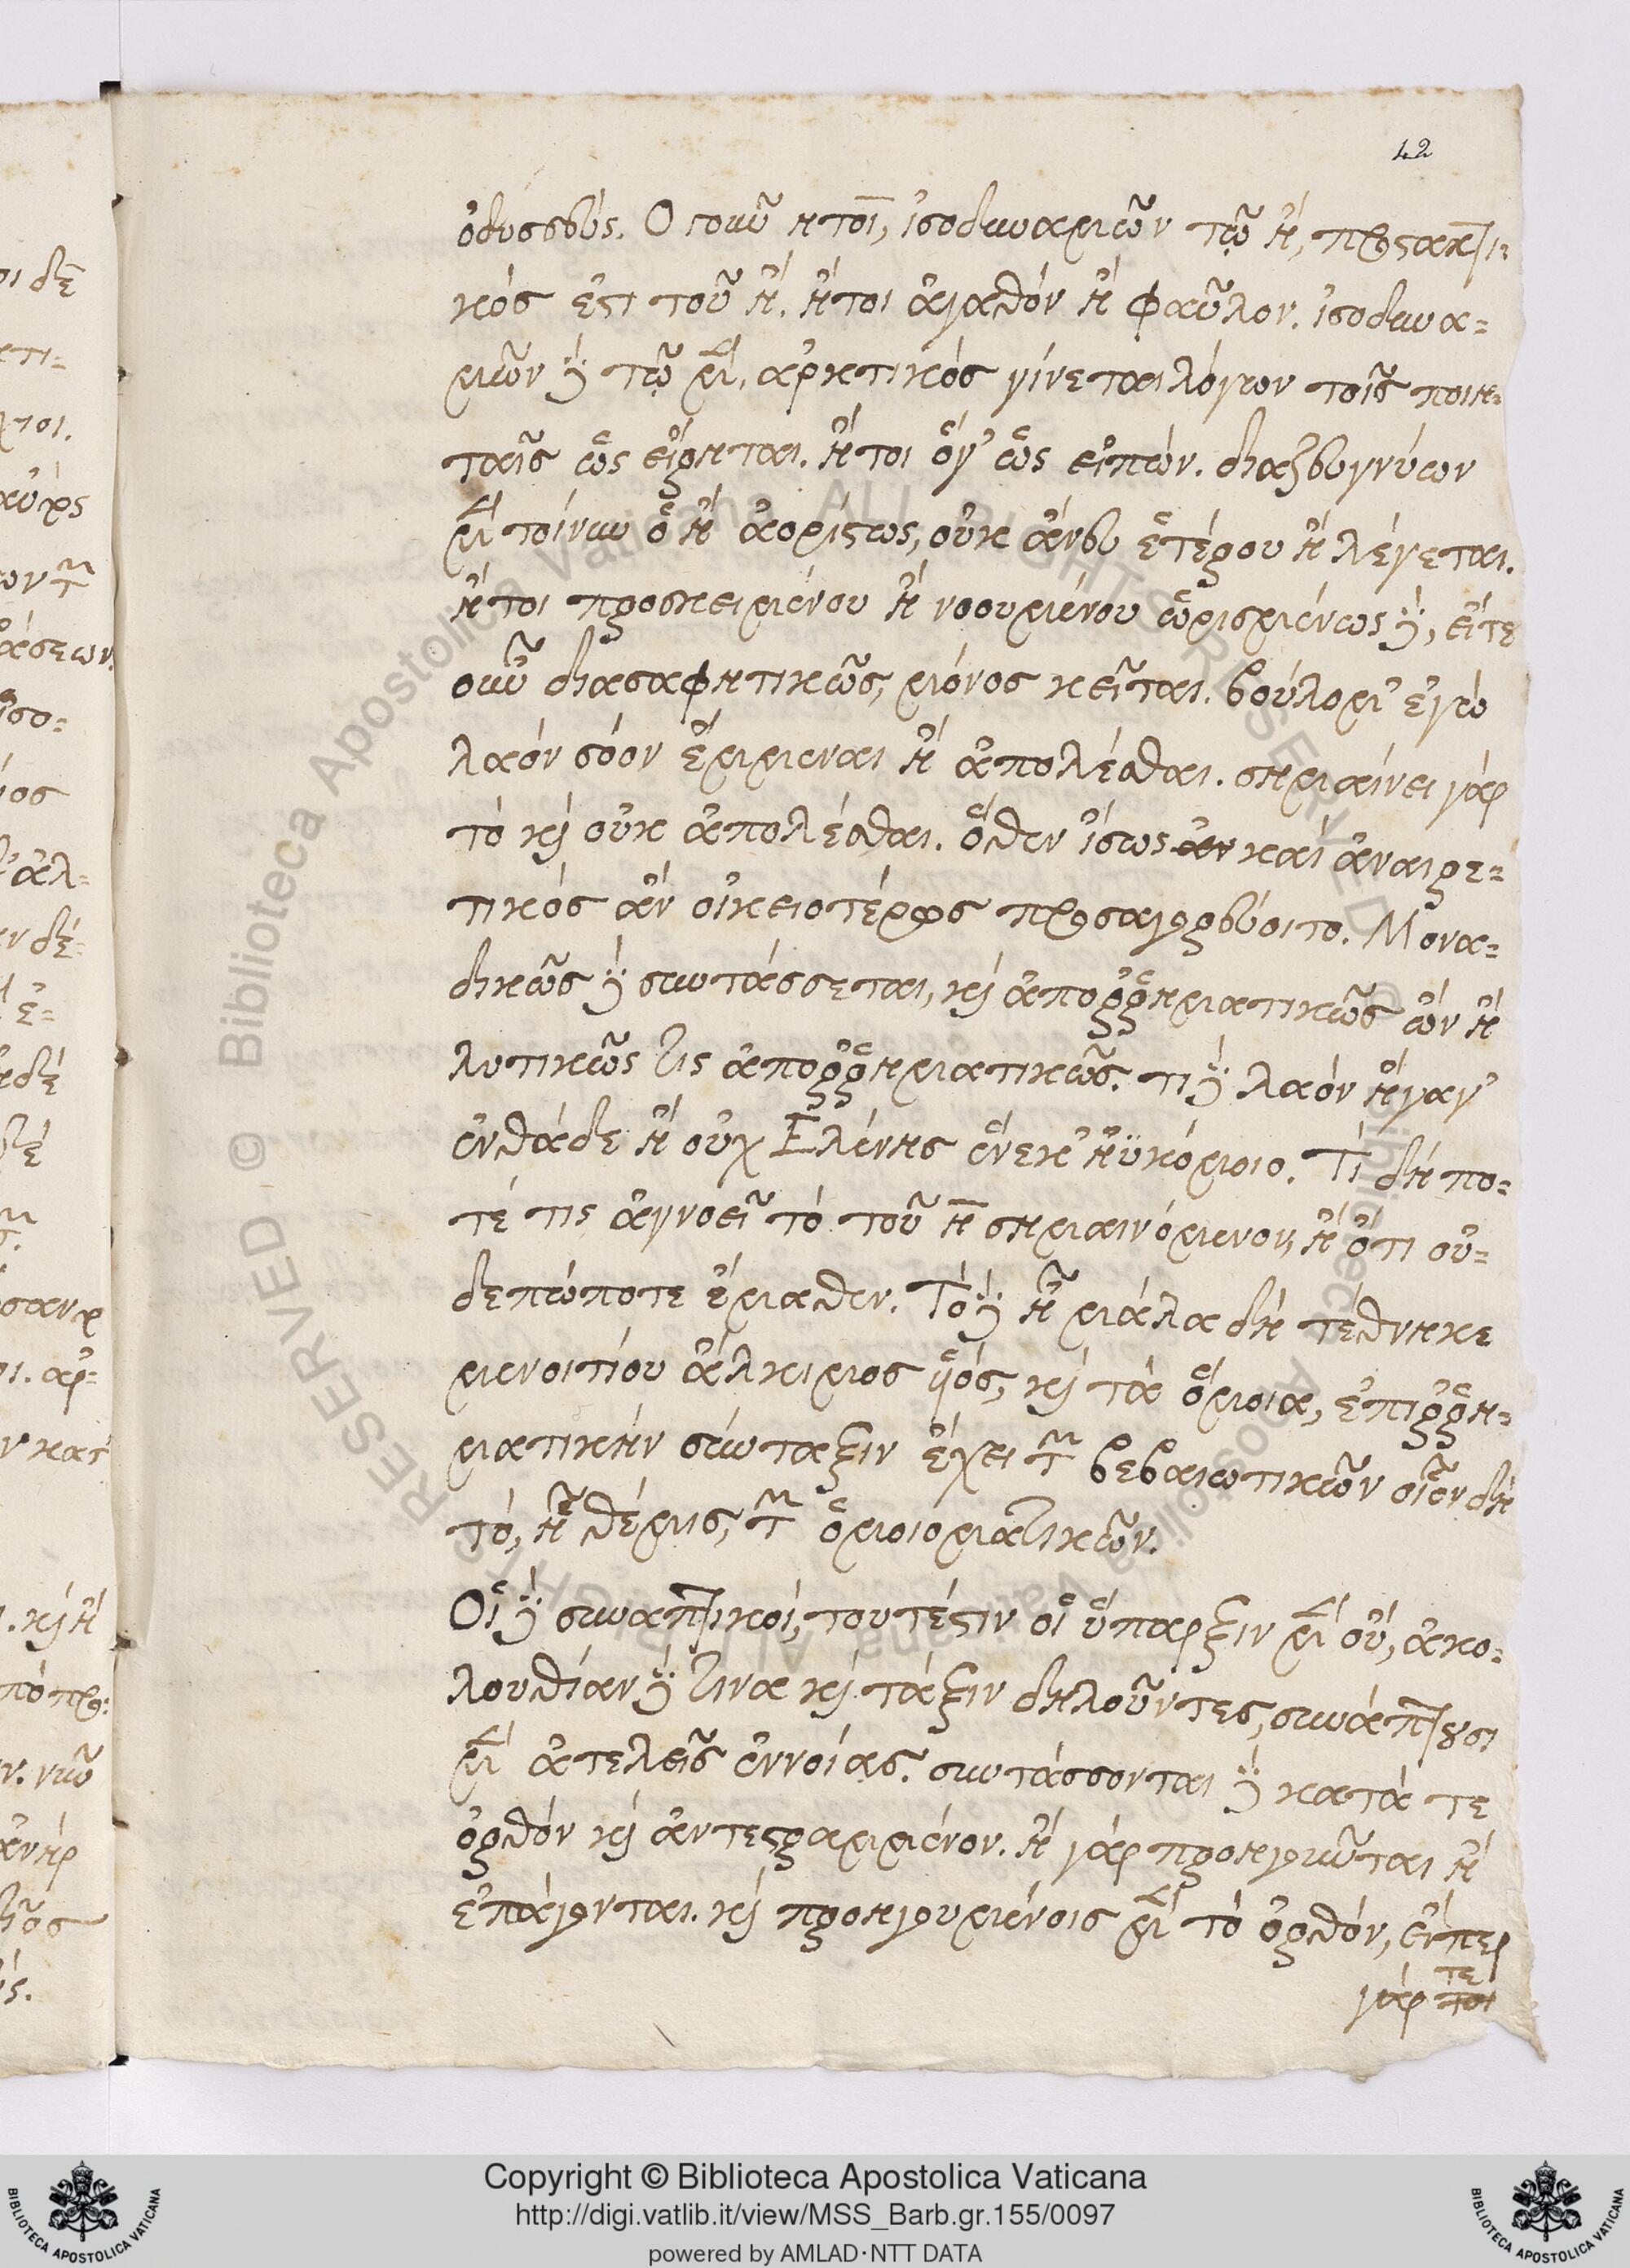 42
ὀδυσσεύς. Ὁ γοῦν ἤτοι, ἰσοδυναμῶν τῷ ἢ, προτακτι=
κός ἐστι τοῦ ἢ. ἤτοι ἀγαθόν ἢ φαῦλον. ἰσοδυνα=
μῶν δὲ τῷ μὲν, ἀρκτικός γίνεται λόγων τοῖς ποιη=
ταῖς ὡς εἴρηται. ἤτοι ὅγ' ὡς εἰπών. διαζευγνύων
μὲν τοίνυν ὁ ἢ ἀορίστως, οὐκ ἄνευ ἑτέρου ἢ λέγεται.
ἤτοι προσκειμένου ἢ νοουμένου ὡρισμένως δὲ, εἴτε
οὖν διασαφητικῶς, μόνος κεῖται. βούλομ' ἐγὼ
λαόν σόον ἔμμεναι ἢ ἀπολέσθαι. σημαίνει γάρ
τό καὶ οὐκ ἀπολέσθαι. ὅθεν ἴσως καὶ ἀναιρε=
τικός ἂν οἰκειοτέρως προσαγορεύοιτο. Μονα=
δικῶς δὲ συντάσσεται, καὶ ἀπορρηματικῶς ὢν ἢ
λυτικῶς τις ἀπορρηματικῶς. τί δὲ λαόν ἤγαγ'
ἐνθάδε ἢ οὐχ Ἑλένης ἕνεκ' ἠϋκόμοιο. Τί δή πο=
τέ τις ἀγνοεῖ τό τοῦ ἢ σημαινόμενον, ἢ ὅτι οὐ=
δεπώποτε ἔμαθεν. Τό δὲ ἦ μάλα δή τέθνηκε
μενοιτίου ἄλκιμος υἱός, καὶ τά ὅμοια, ἐπιρρη=
ματικήν σύνταξιν ἔχει τῶν βεβαιωτικῶν οἷον δή
τό, ἦ θέμις, τῶν ὁμοιοματικῶν.
Οἱ δὲ συναπτικοί, τουτέστιν οἱ ὕπαρξιν μὲν οὔ, ἀκο=
λουθίαν δὲ τινα καὶ τάξιν δηλοῦντες, συνάπτουσι
μὲν ἀτελεῖς ἐννοίας. συντάσσονται δὲ κατά τε
ὀρθόν καὶ ἀντεστραμμένον. ἢ γάρ προηγοῦνται ἢ
ἐπάγονται. καὶ προηγουμένοις μὲν τό ὀρθόν, εἴπερ
γάρ τε
Copyright © Biblioteca Apostolica Vaticana
http://digi.vatlib.it/view/MSS_Barb.gr.155/0097
powered by AMLAD·NTT DATA